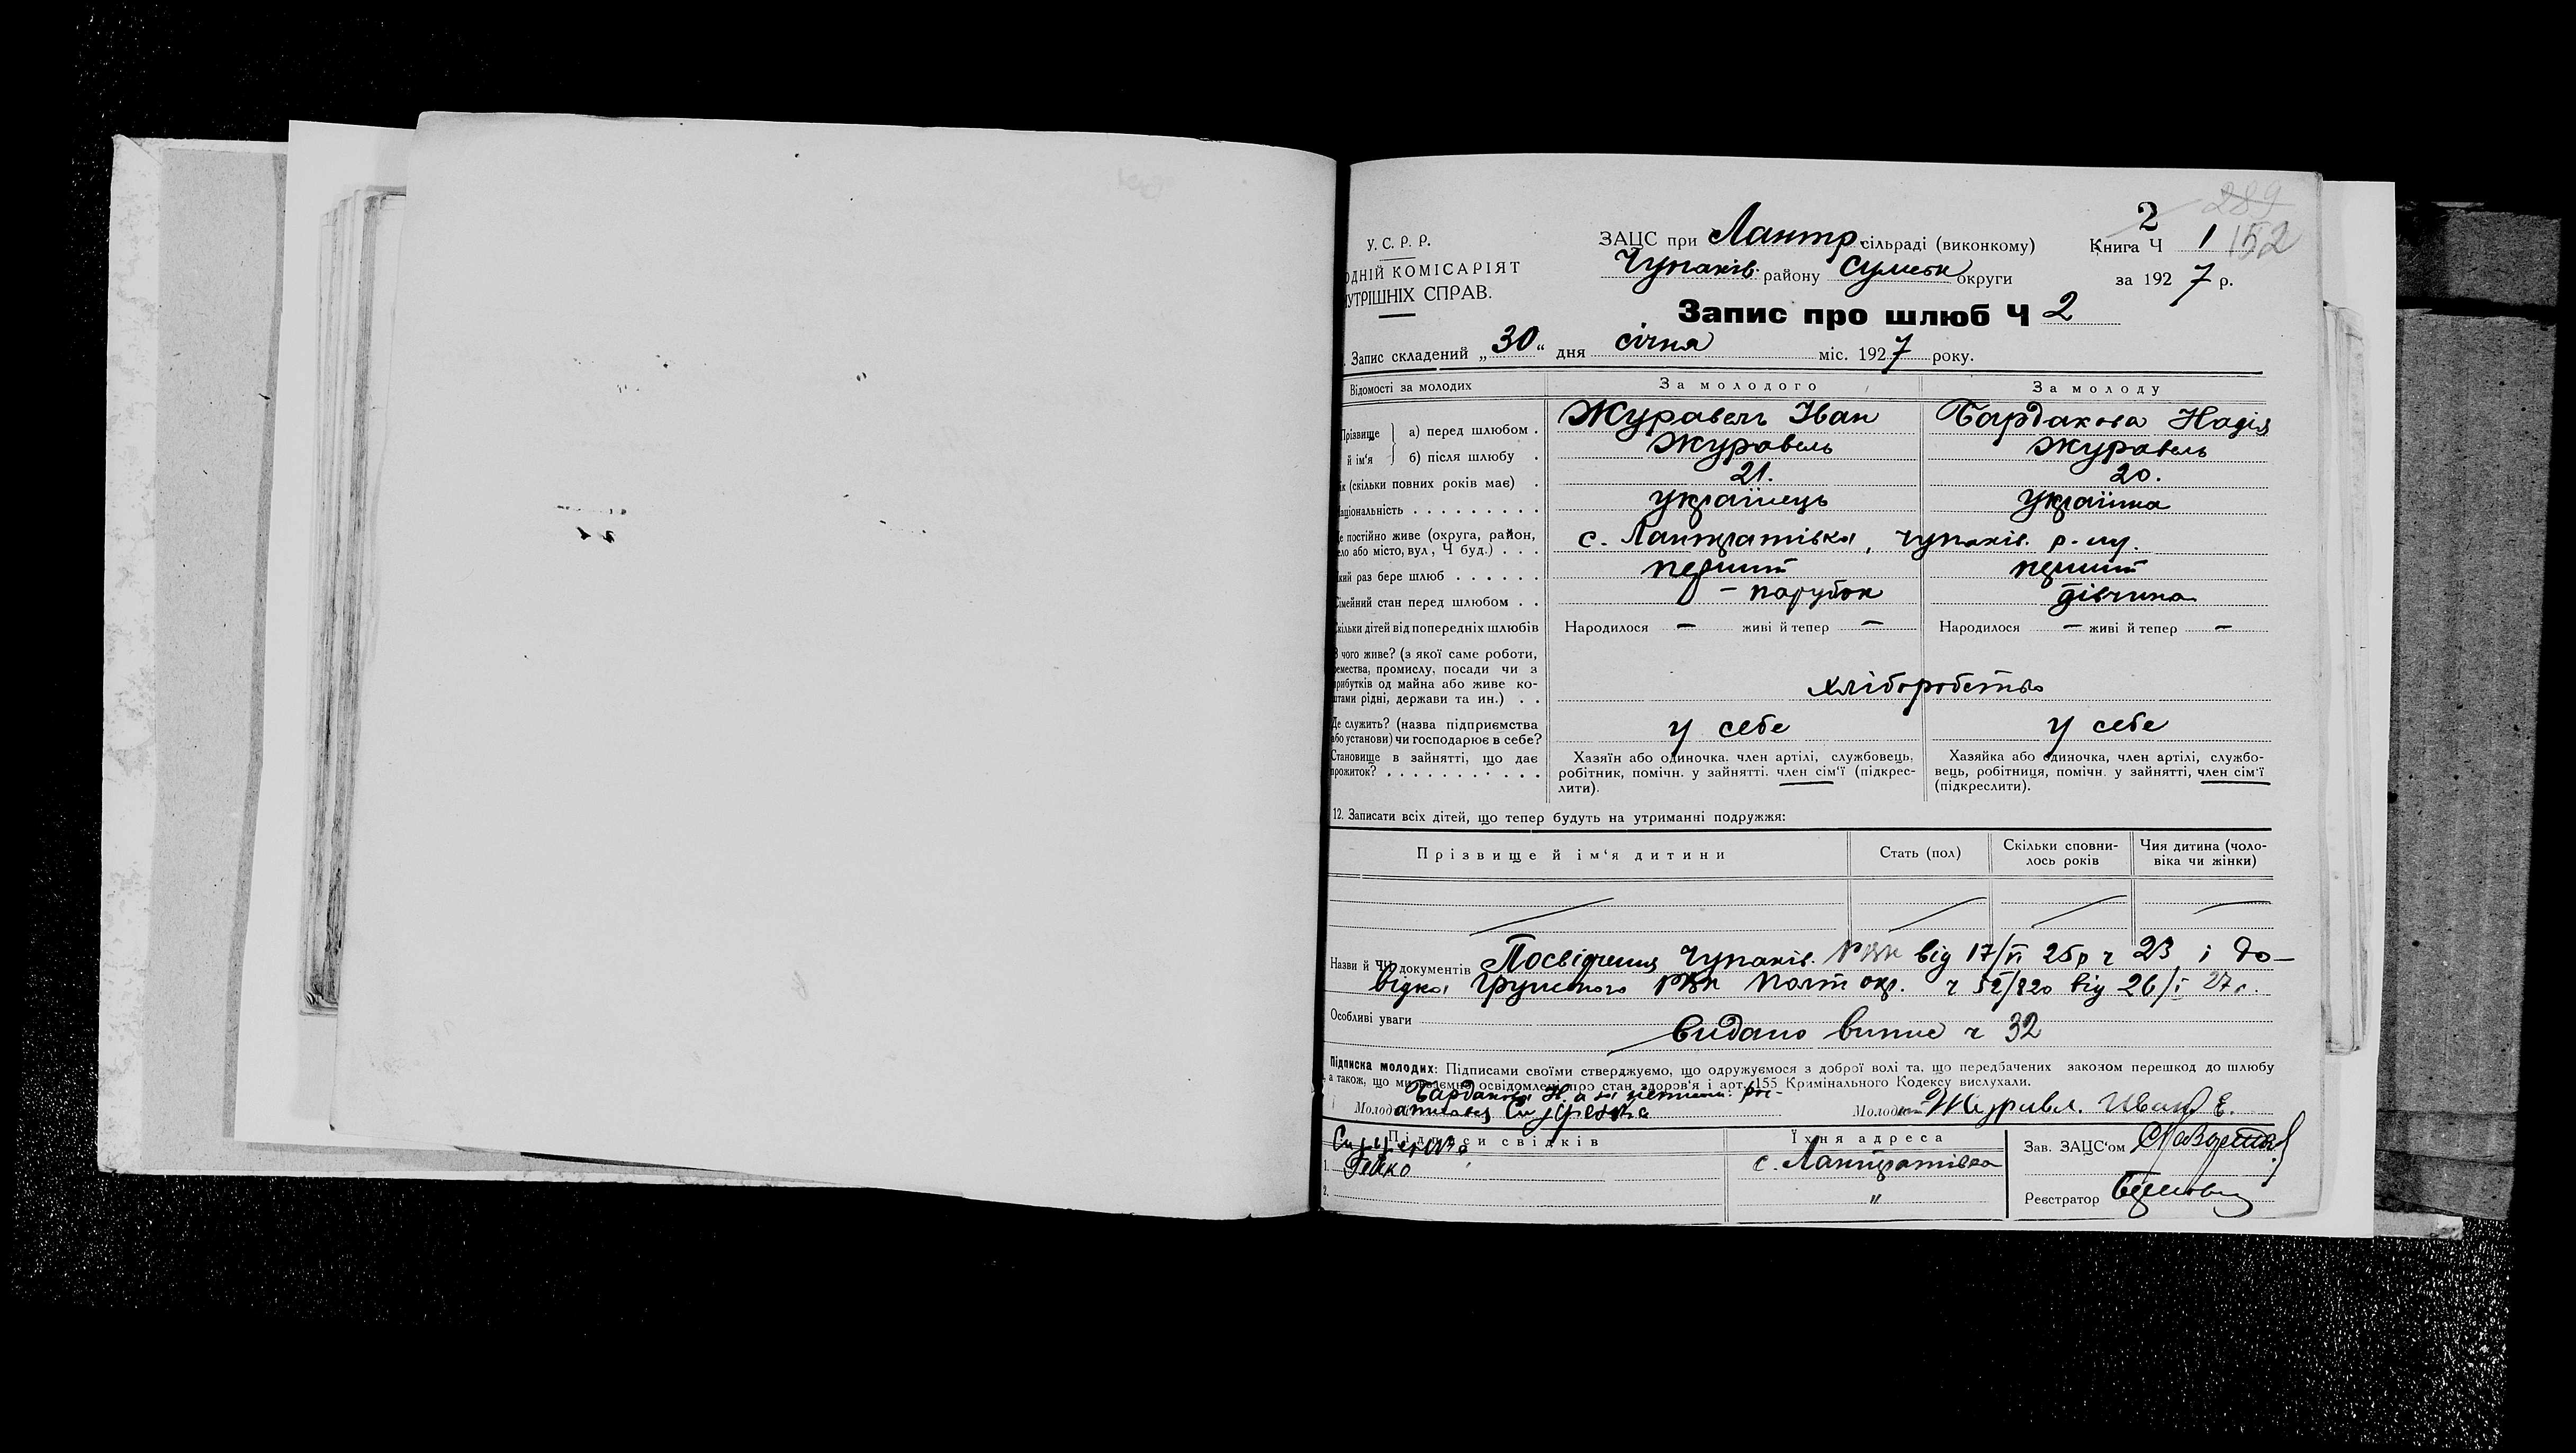 2 289
У. С. Р. Р. ЗАЦС при Лантр. сільраді (виконкому) Книга Ч 1 152
ОДНІЙ КОМІСАРІЯТ Чупахів. району Сумськ округи за 1927 р.
УТРІШНІХ СПРАВ.
Запис про шлюб Ч 2
Запис складений „30“ дня січня міс. 1927 року.
Відомості за молодих За молодого За молоду
Прізвище й ім'я а) перед шлюбом . Журавель Іван Бардакова Надія
б) після шлюбу . Журавель Журавель
ік (скільки повних років має) . 21. 20.
аціональність . . . . . . . . . українець українка
е постійно живе (округа, район,
ело або місто, вул., Ч буд.) . . . с. Лантратівка, Чупахів. р-ну.
кий раз бере шлюб . . . . . . перший перший
імейний стан перед шлюбом . . – парубок дівчина
кільки дітей від попередніх шлюбів Народилося – живі й тепер – Народилося – живі й тепер –
З чого живе? (з якої саме роботи,
ремества, промислу, посади чи з
прибутків од майна або живе ко-
штами рідні, держави та ин.) . . хліборобство
Де служить? (назва підприємства
або установи) чи господарює в себе? у себе у себе
Становище в зайнятті, що дає
прожиток? . . . . . . . . . . .
Хазяїн або одиночка, член артілі, службовець,
робітник, помічн. у зайнятті, член сім'ї (підкрес-
лити).
Хазяйка або одиночка, член артілі, службо-
вець, робітниця, помічн. у зайнятті, член сім'ї
(підкреслити).
12. Записати всіх дітей, що тепер будуть на утриманні подружжя:
Прізвище й ім'я дитини Стать (пол) Скільки сповни-
лось років Чия дитина (чоло-
віка чи жінки)
Назви й ЧЧ документів Посвідчення Чупахів. РВК від 17/VI 25 р ч 23 і до-
відка Грунського РВК Полт окр. ч 52/820 від 26/I 27 р.
Особливі уваги Видано випис ч 32
Підписка молодих: Підписами своїми стверджуємо, що одружуємося з доброї волі та, що передбачених законом перешкод до шлюбу
а також, що ми взаємно освідомлені про стан здоров'я і арт. 155 Кримінального Кодексу вислухали.
Бардакова Н. а за
Молод Молодий Журавл. Иван Е.
Підписи свідків Їхня адреса Зав. ЗАЦС'ом
1. с. Лантратівка
2. " Реєстратор